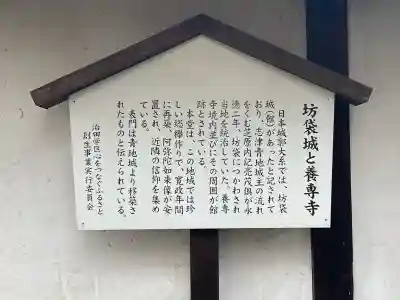 坊袋城と養専寺
日本城郭大系では、坊袋
城（館）があったと記されて
おり、志津青地城主の流れ
をくむ芝原内記亮茂俱が永
徳二年、坊袋につかわされ
当地を統治していた。養専
寺境内並びにその周囲が館
跡とされている。
本堂は、この地域では珍
しい総欅作りで、寛政年間
に再築、阿弥陀如来像が安
置され、近隣の信仰を集め
ている。
表門は青地城より移築さ
れたものと伝えられている。
治田学区心をつなぐふるさと
創生事業実行委員会